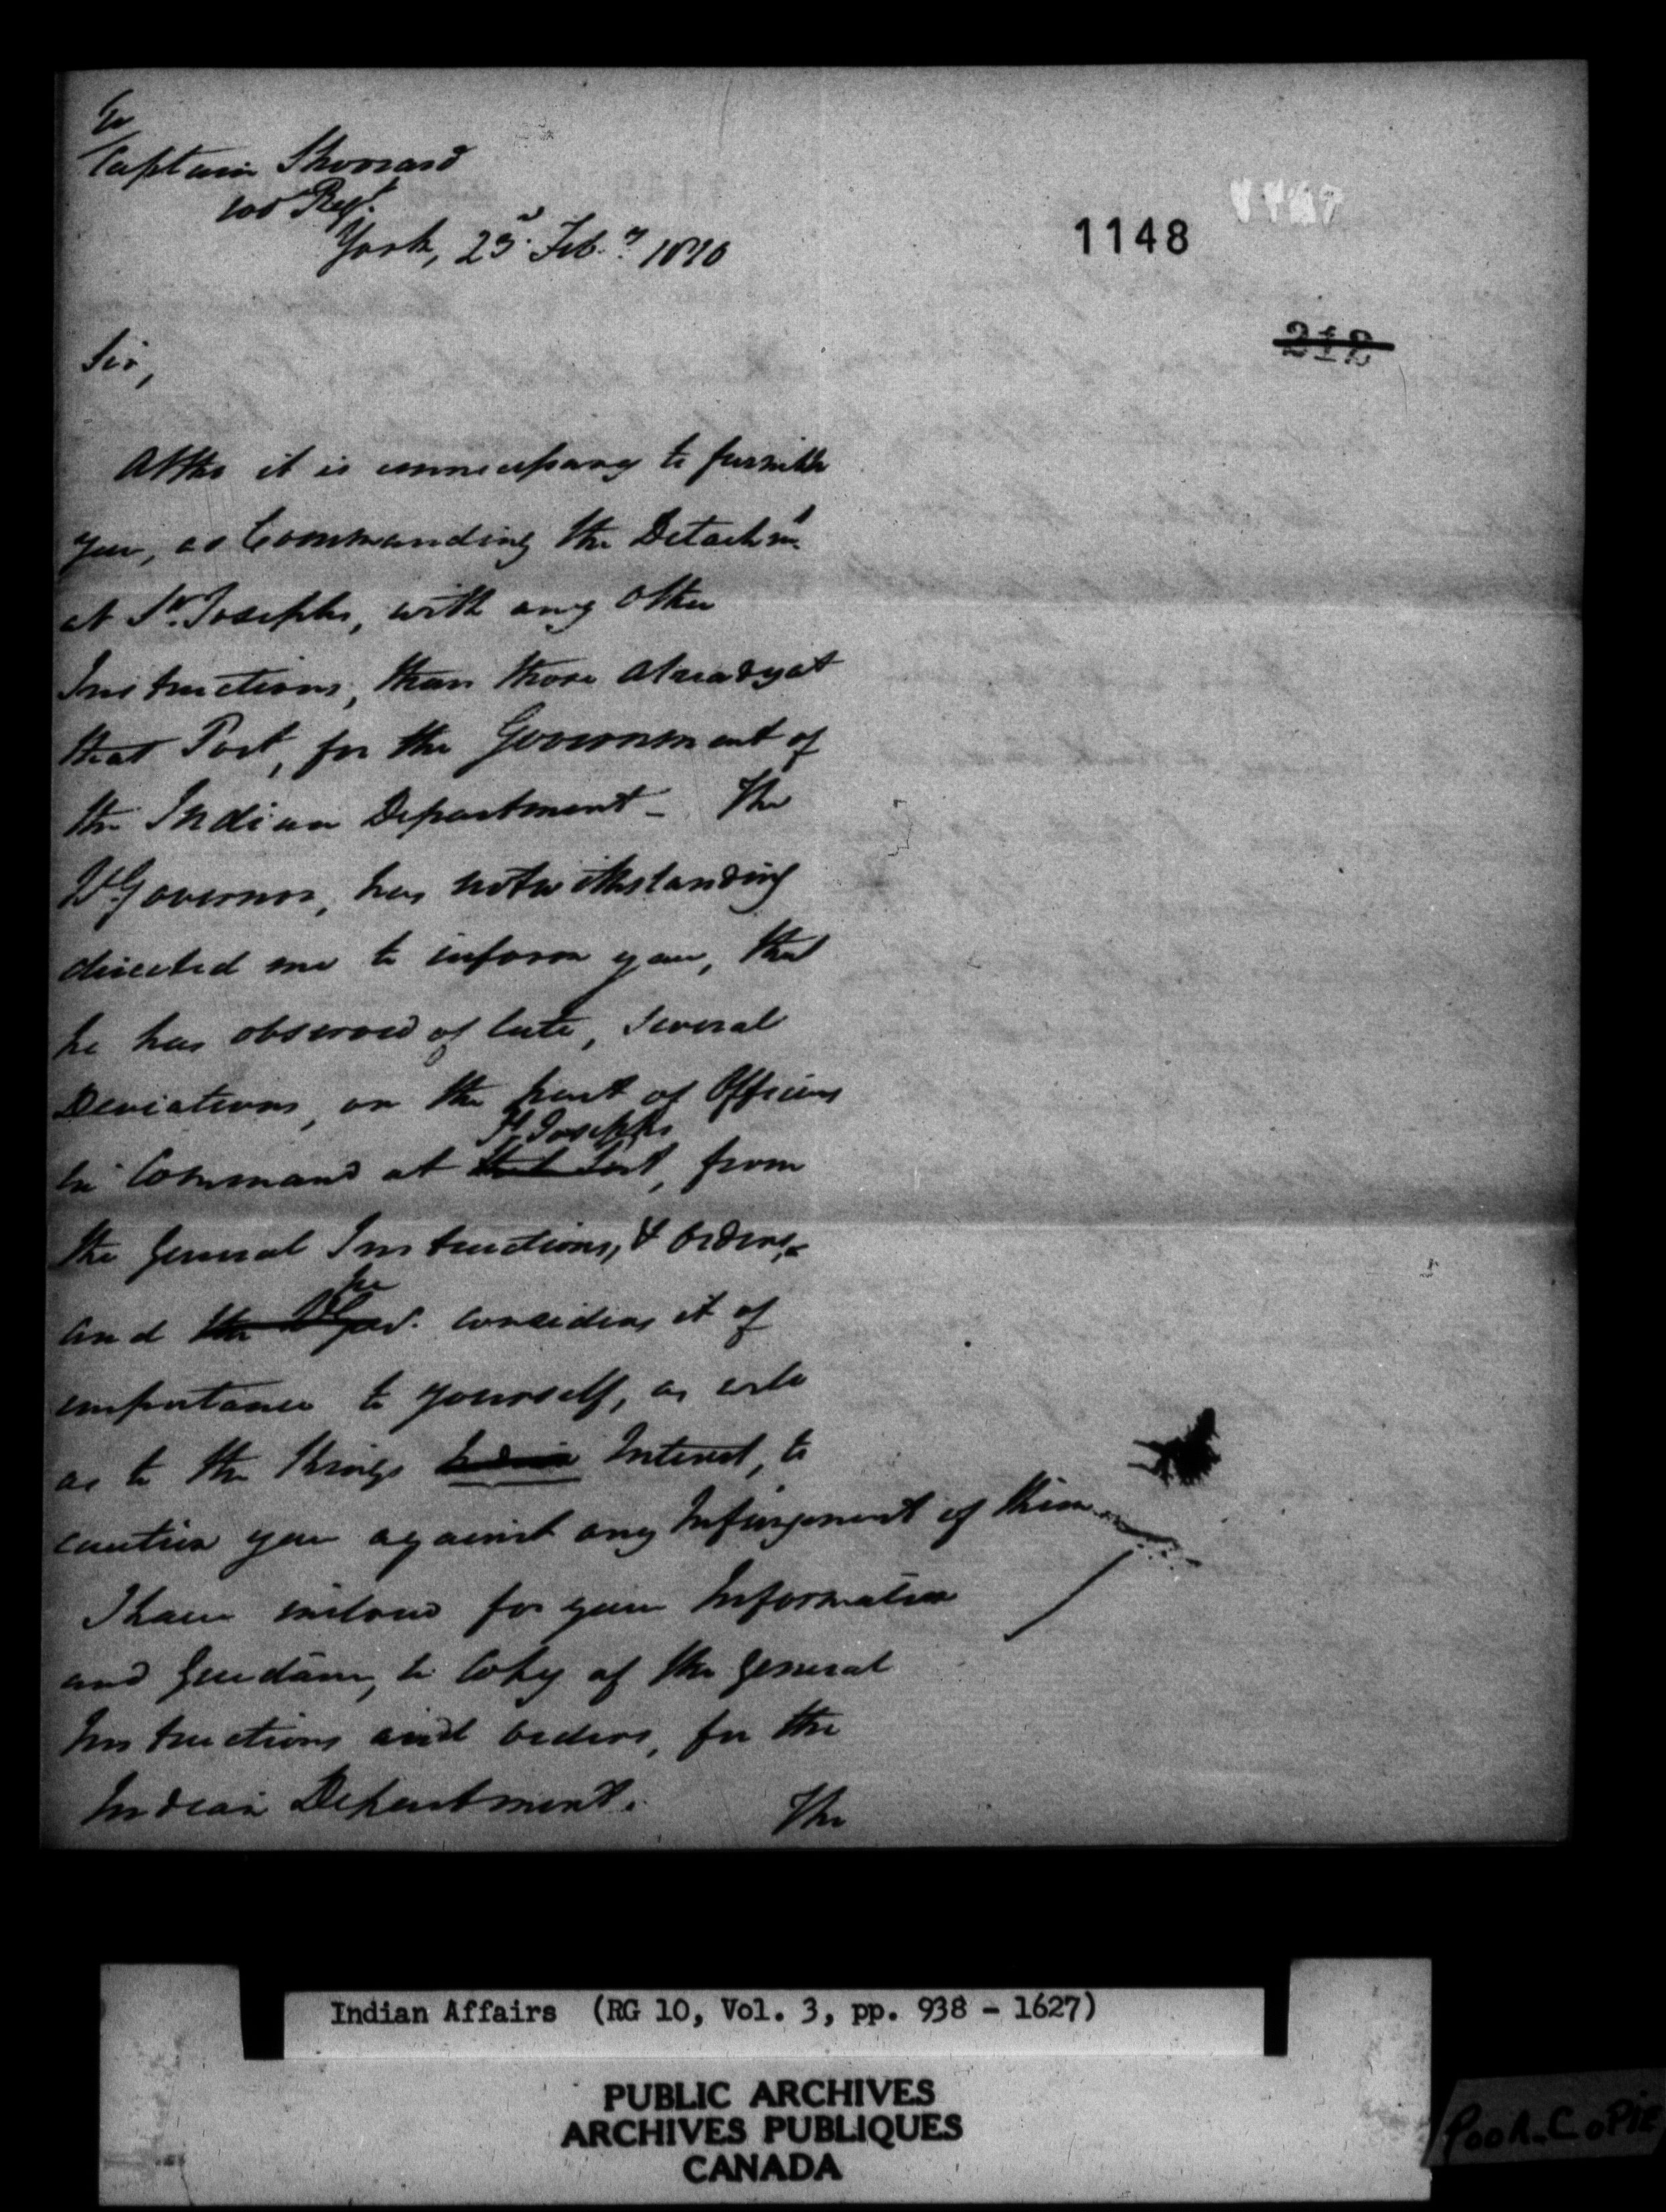 To
Captain Sherrard
100 Regt.
York, 23d. Feby. 1810
1148
212
Sir,
Altho it is unnecessary to furnish
you, as Commanding the Detachmt.
at St. Josephs, with any other
Instructions, than those already at
that Post, for the Government of
the Indian Department - The
Lt. Governor, has notwithstanding
directed me to inform you, that
he has observed of late, several
Deviations, on the part of Officers
in Command at that Post, from
St. Josephs
the General Instructions, & Orders,
and the Lt. Gov. considers it of
he
importance to yourself, as well
as to the Kings Interest, to
caution you against any Infringement of them
I have inclosed for your Information
and Guidance, a Copy of the General
Instructions and orders, for the
Indian Department.
The
Indian Affairs (RG 10, Vol. 3, pp. 938 - 1627)
PUBLIC ARCHIVES
ARCHIVES PUBLIQUES
CANADA
POOR COPIE